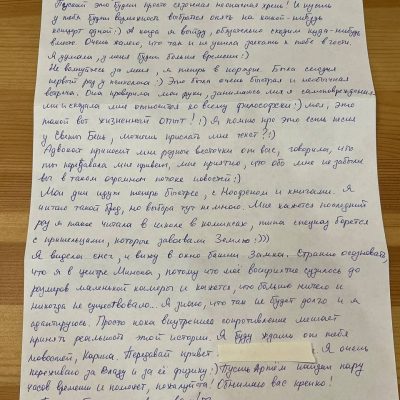 Передай это будни просто сезонная носатная хрень! И пусть
у тебя будет возможность выбраться опять на какой-нибудь
концерт одной :) А когда я выйду, обязательно сходим куда-нибудь
вместе. Очень жалею, что так и не успела заехать к тебе в гости.
Я думала, у меня будет больше времени :)
Не волнуйтесь за меня, я теперь в порядке. Была сегодня
первый раз у психолога :) Это была очень быстрая и необычная
встреча. Она проверила мои руки, занималась ли я самоповреждением
и сказала мне относиться ко всему философски :) мол, это
такой вот жизненный опыт! :) Я помню про это есть песня
у Светы Бень, можешь прислать мне текст? :)
Адвокат приносит мне разные весточки от вас, говорила, что
ты передавала мне привет, мне приятно, что обо мне не забыли
вы в таком огромном потоке новостей :)
Мои дни идут теперь быстрее, с Неофеном и книгами. Я
читаю такой бред, но выбора тут не много. Мне кажется последний
раз я такое читала в школе в комиксах, типа спецназ борется
с пришельцами, которые завоевали Землю :)))
Я видела снег, и вижу в окно башни Замка. Странно осознавать,
что я в центре Минска, потому что моё восприятие сузилось до
размеров маленькой камеры и кажется, что больше ничего и
никогда не существовало. Я знаю, что так не будет долго и я
адаптируюсь. Просто пока внутреннее сопротивление мешает
принять реальность этой истории. Я буду ждать от тебя
новостей, Карина. Передавай привет . Я очень
переживаю за Владу и за её физику :) Пусть Артём найдёт пару
часов времени и поможет, пожалуйста! Обнимаю вас крепко!